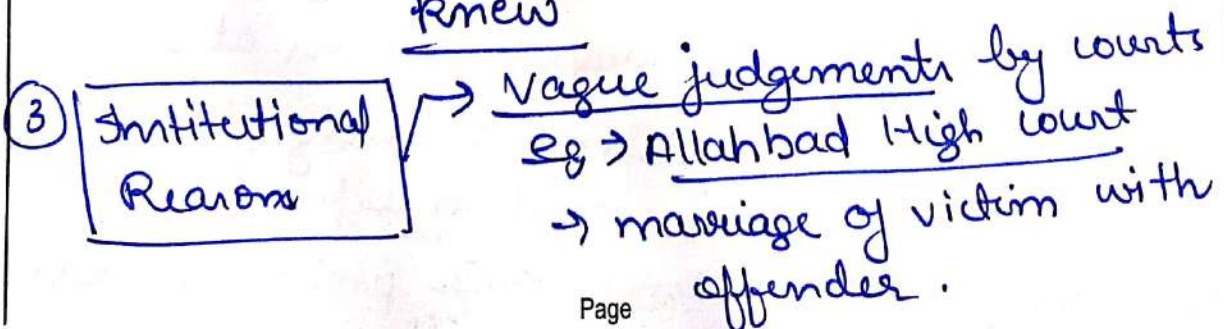 knew
③ Institutional Reasons → Vague judgements by courts
eg → Allahbad High court
→ marriage of victim with
offender.
Page